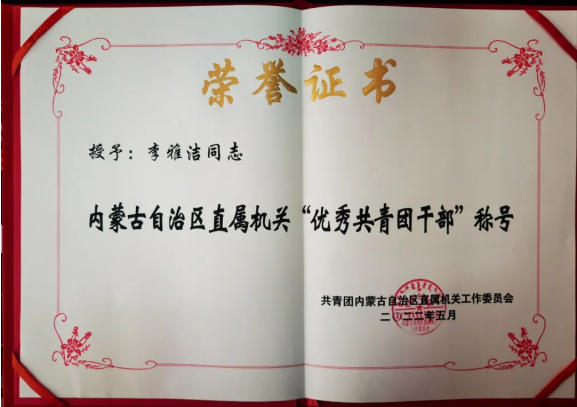 荣誉证书
授予：李雅洁同志
内蒙古自治区直属机关“优秀共青团干部”称号
共青团内蒙古自治区直属机关工作委员会
二〇二二年五月